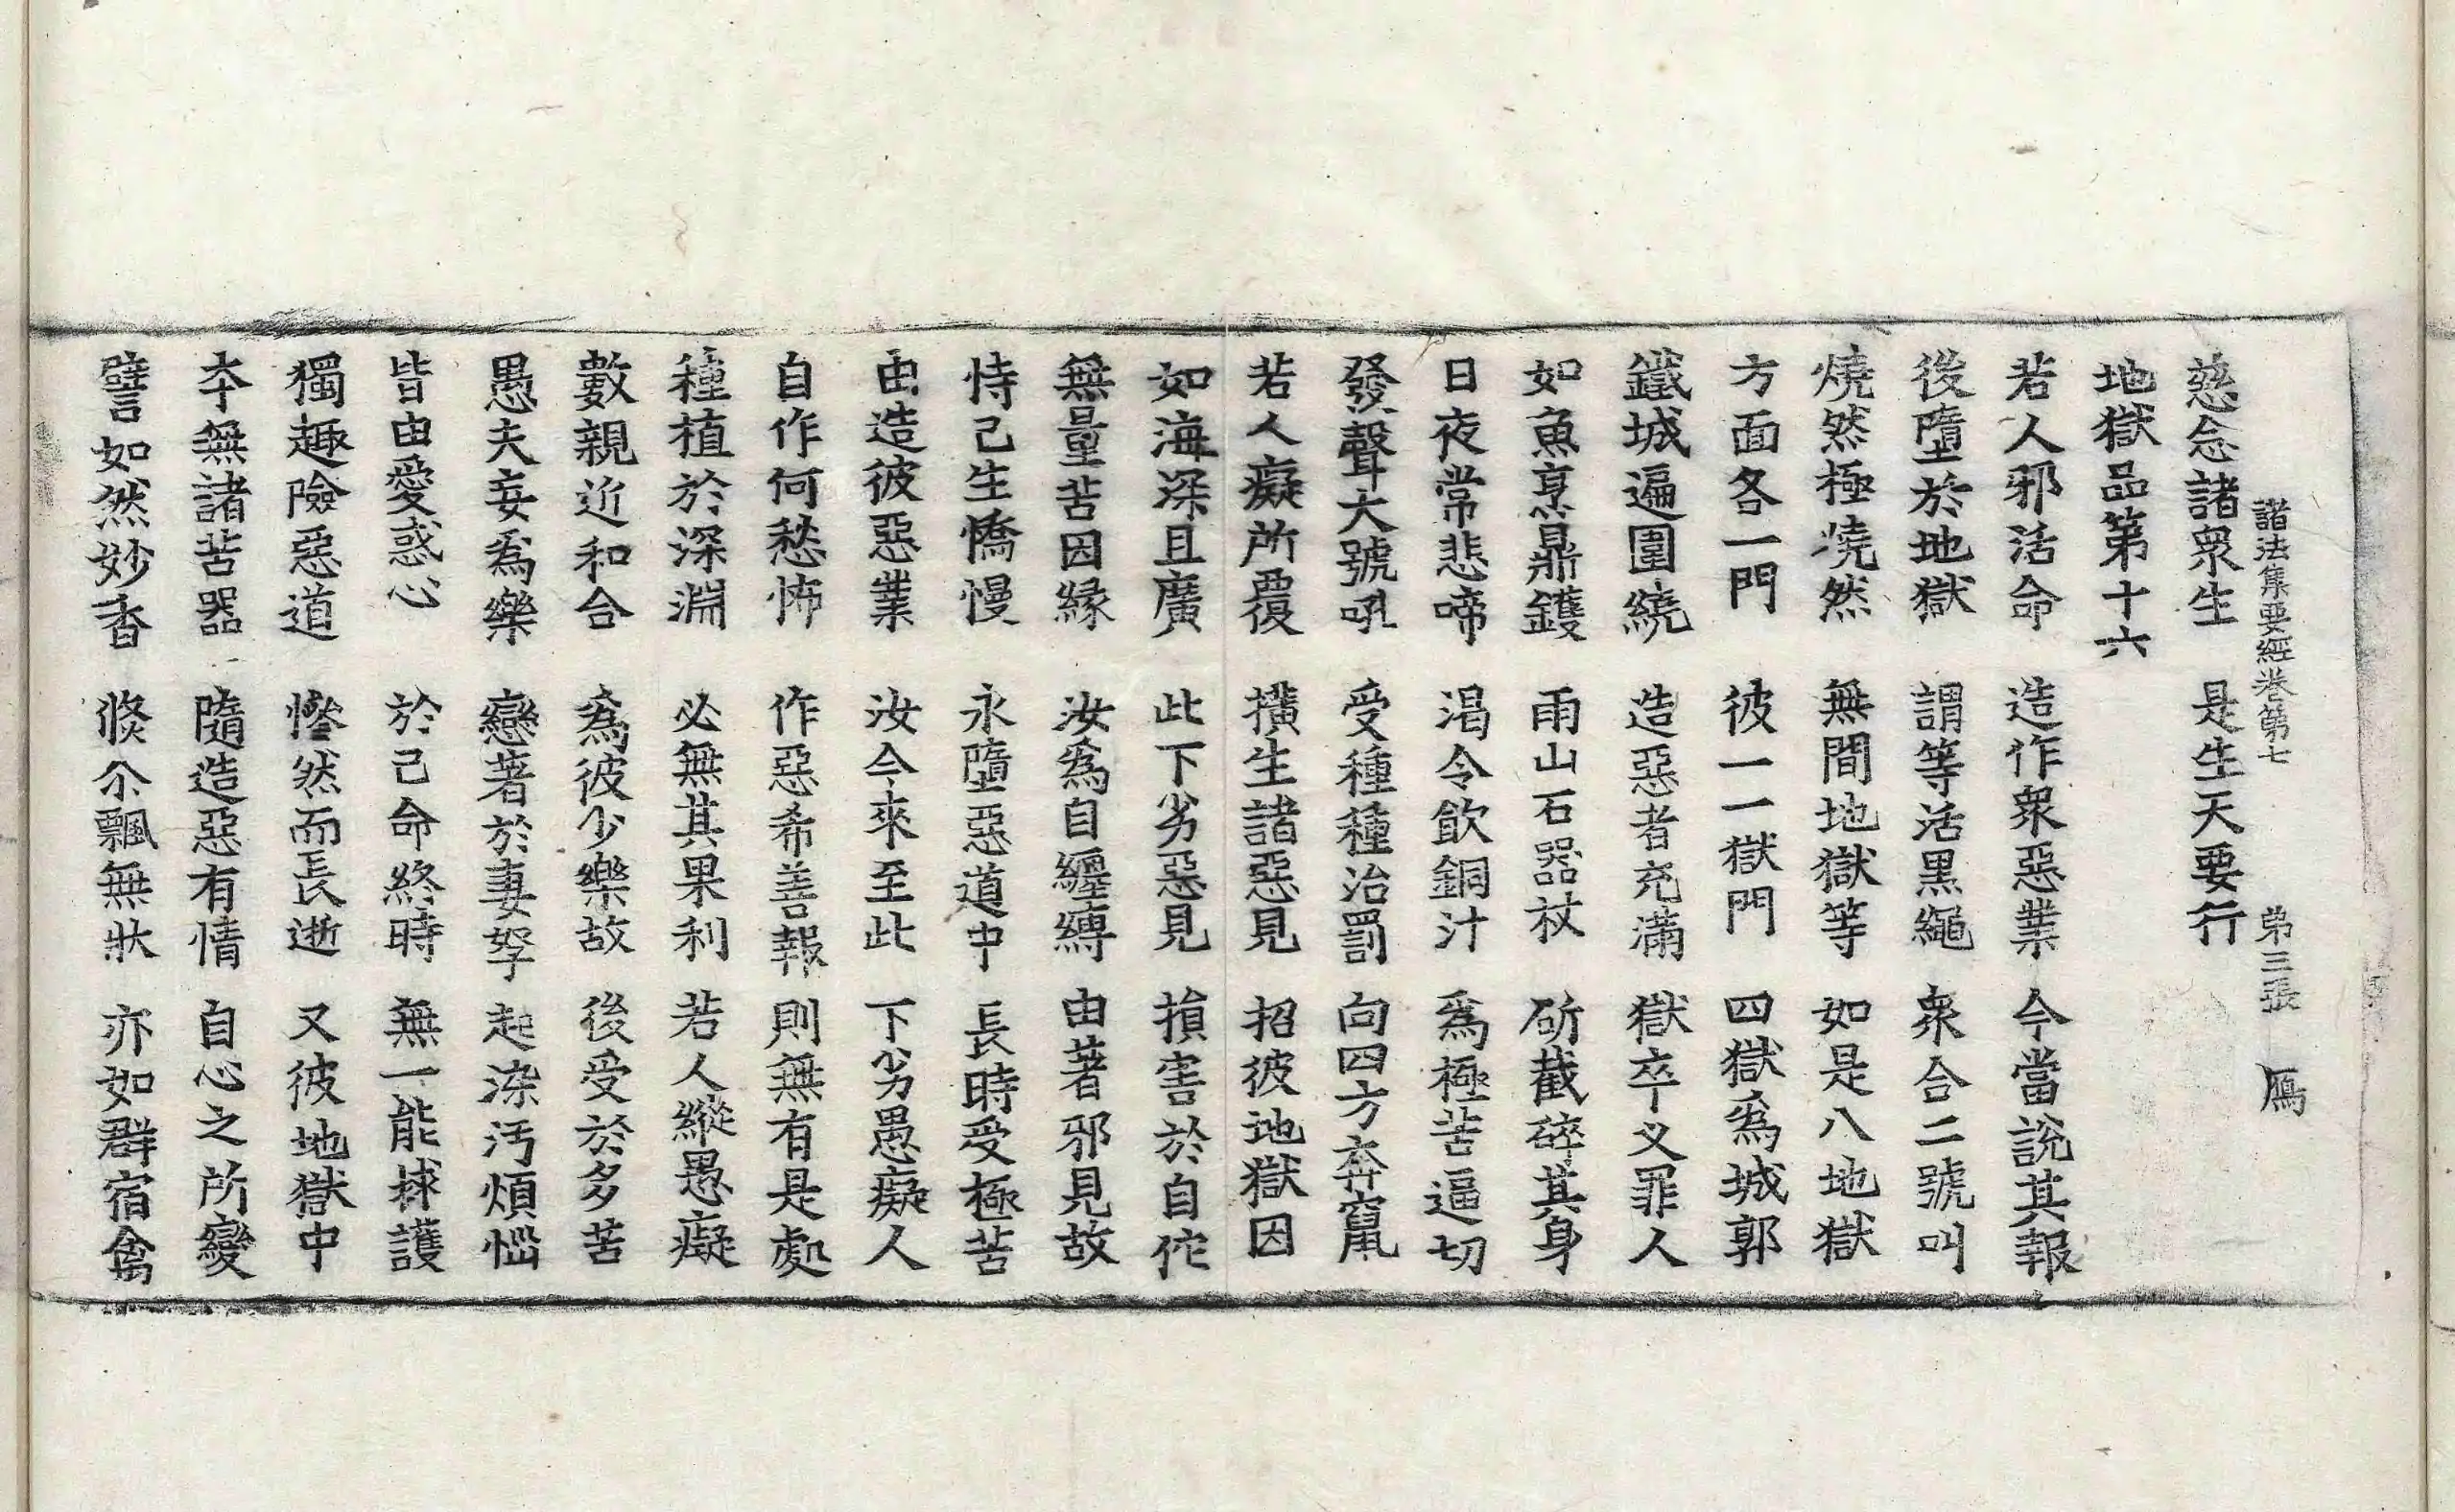 諸法集要經卷第七　第三張　鴈
慈念諸衆生　是生天要行
地獄品第十六
若人邪活命　造作衆惡業　今當說其報
後墮於地獄　謂等活黑繩　衆合二號叫
燒然極燒然　無間地獄等　如是八地獄
方面各一門　彼一一獄門　四獄爲城郭
鐵城遍圍繞　造惡者充滿　獄卒义罪人
如魚烹鼎鑊　雨山石器杖　斫截碎其身
日夜常悲啼　渴令飲銅汁　爲極苦逼切
發聲大號吼　受種種治罰　向四方奔竄
若人癡所覆　撗生諸惡見　招彼地獄因
如海深且廣　此下劣惡見　損害於自佗
無量苦因緣　汝爲自纏縛　由著邪見故
恃己生憍慢　永墮惡道中　長時受極苦
由造彼惡業　汝今來至此　下劣愚癡人
自作何愁怖　作惡希善報　則無有是處
種植於深淵　必無其果利　若人縱愚癡
數親近和合　爲彼少樂故　後受於多苦
愚夫妄爲樂　戀著於妻孥　起染汚煩惱
皆由愛惑心　於己命終時　無一能捄護
獨趣險惡道　慘然而長逝　又彼地獄中
夲無諸苦器　隨造惡有情　自心之所變
譬如然妙香　倐尒飄無狀　亦如群宿禽